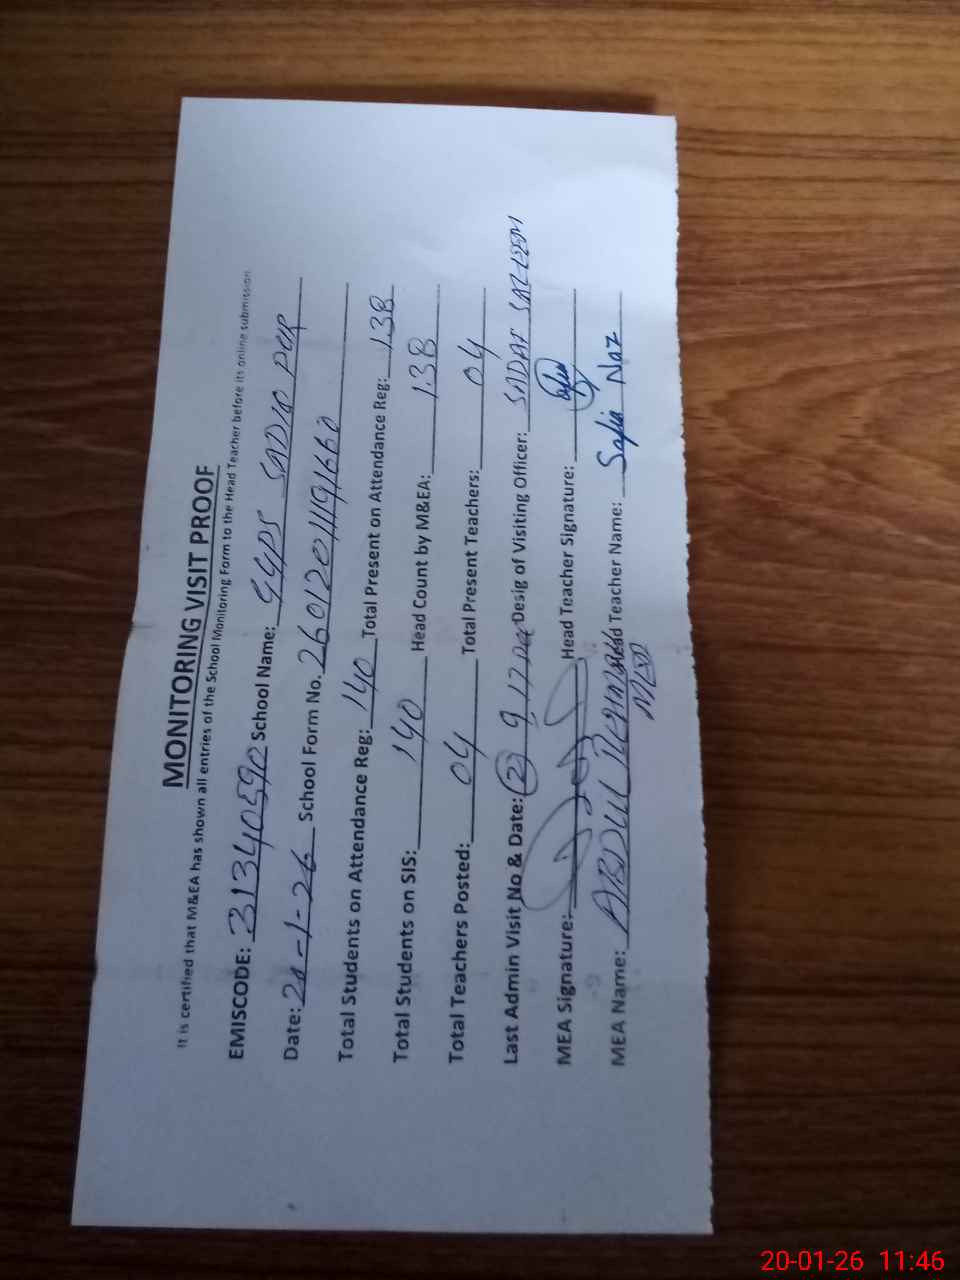 MONITORING VISIT PROOF
It is certified that M&EA has shown all entries of the School Monitoring Form to the Head Teacher before its online submission.
EMISCODE: 31340590 School Name: GGPS SADIQ PUR
Date: 20-1-26 School Form No.
Total Students on Attendance Reg: 140 Total Present on Attendance Reg: 138
Total Students on SIS: 140 Head Count by M&EA: 138
Total Teachers Posted: 04 Total Present Teachers: 04
Last Admin Visit No & Date: (2) 9 17 Dec Desig of Visiting Officer: SADAF
MEA Signature: Head Teacher Signature:
MEA Name: ABDUL Head Teacher Name: Safia Naz
20-01-26 11:46